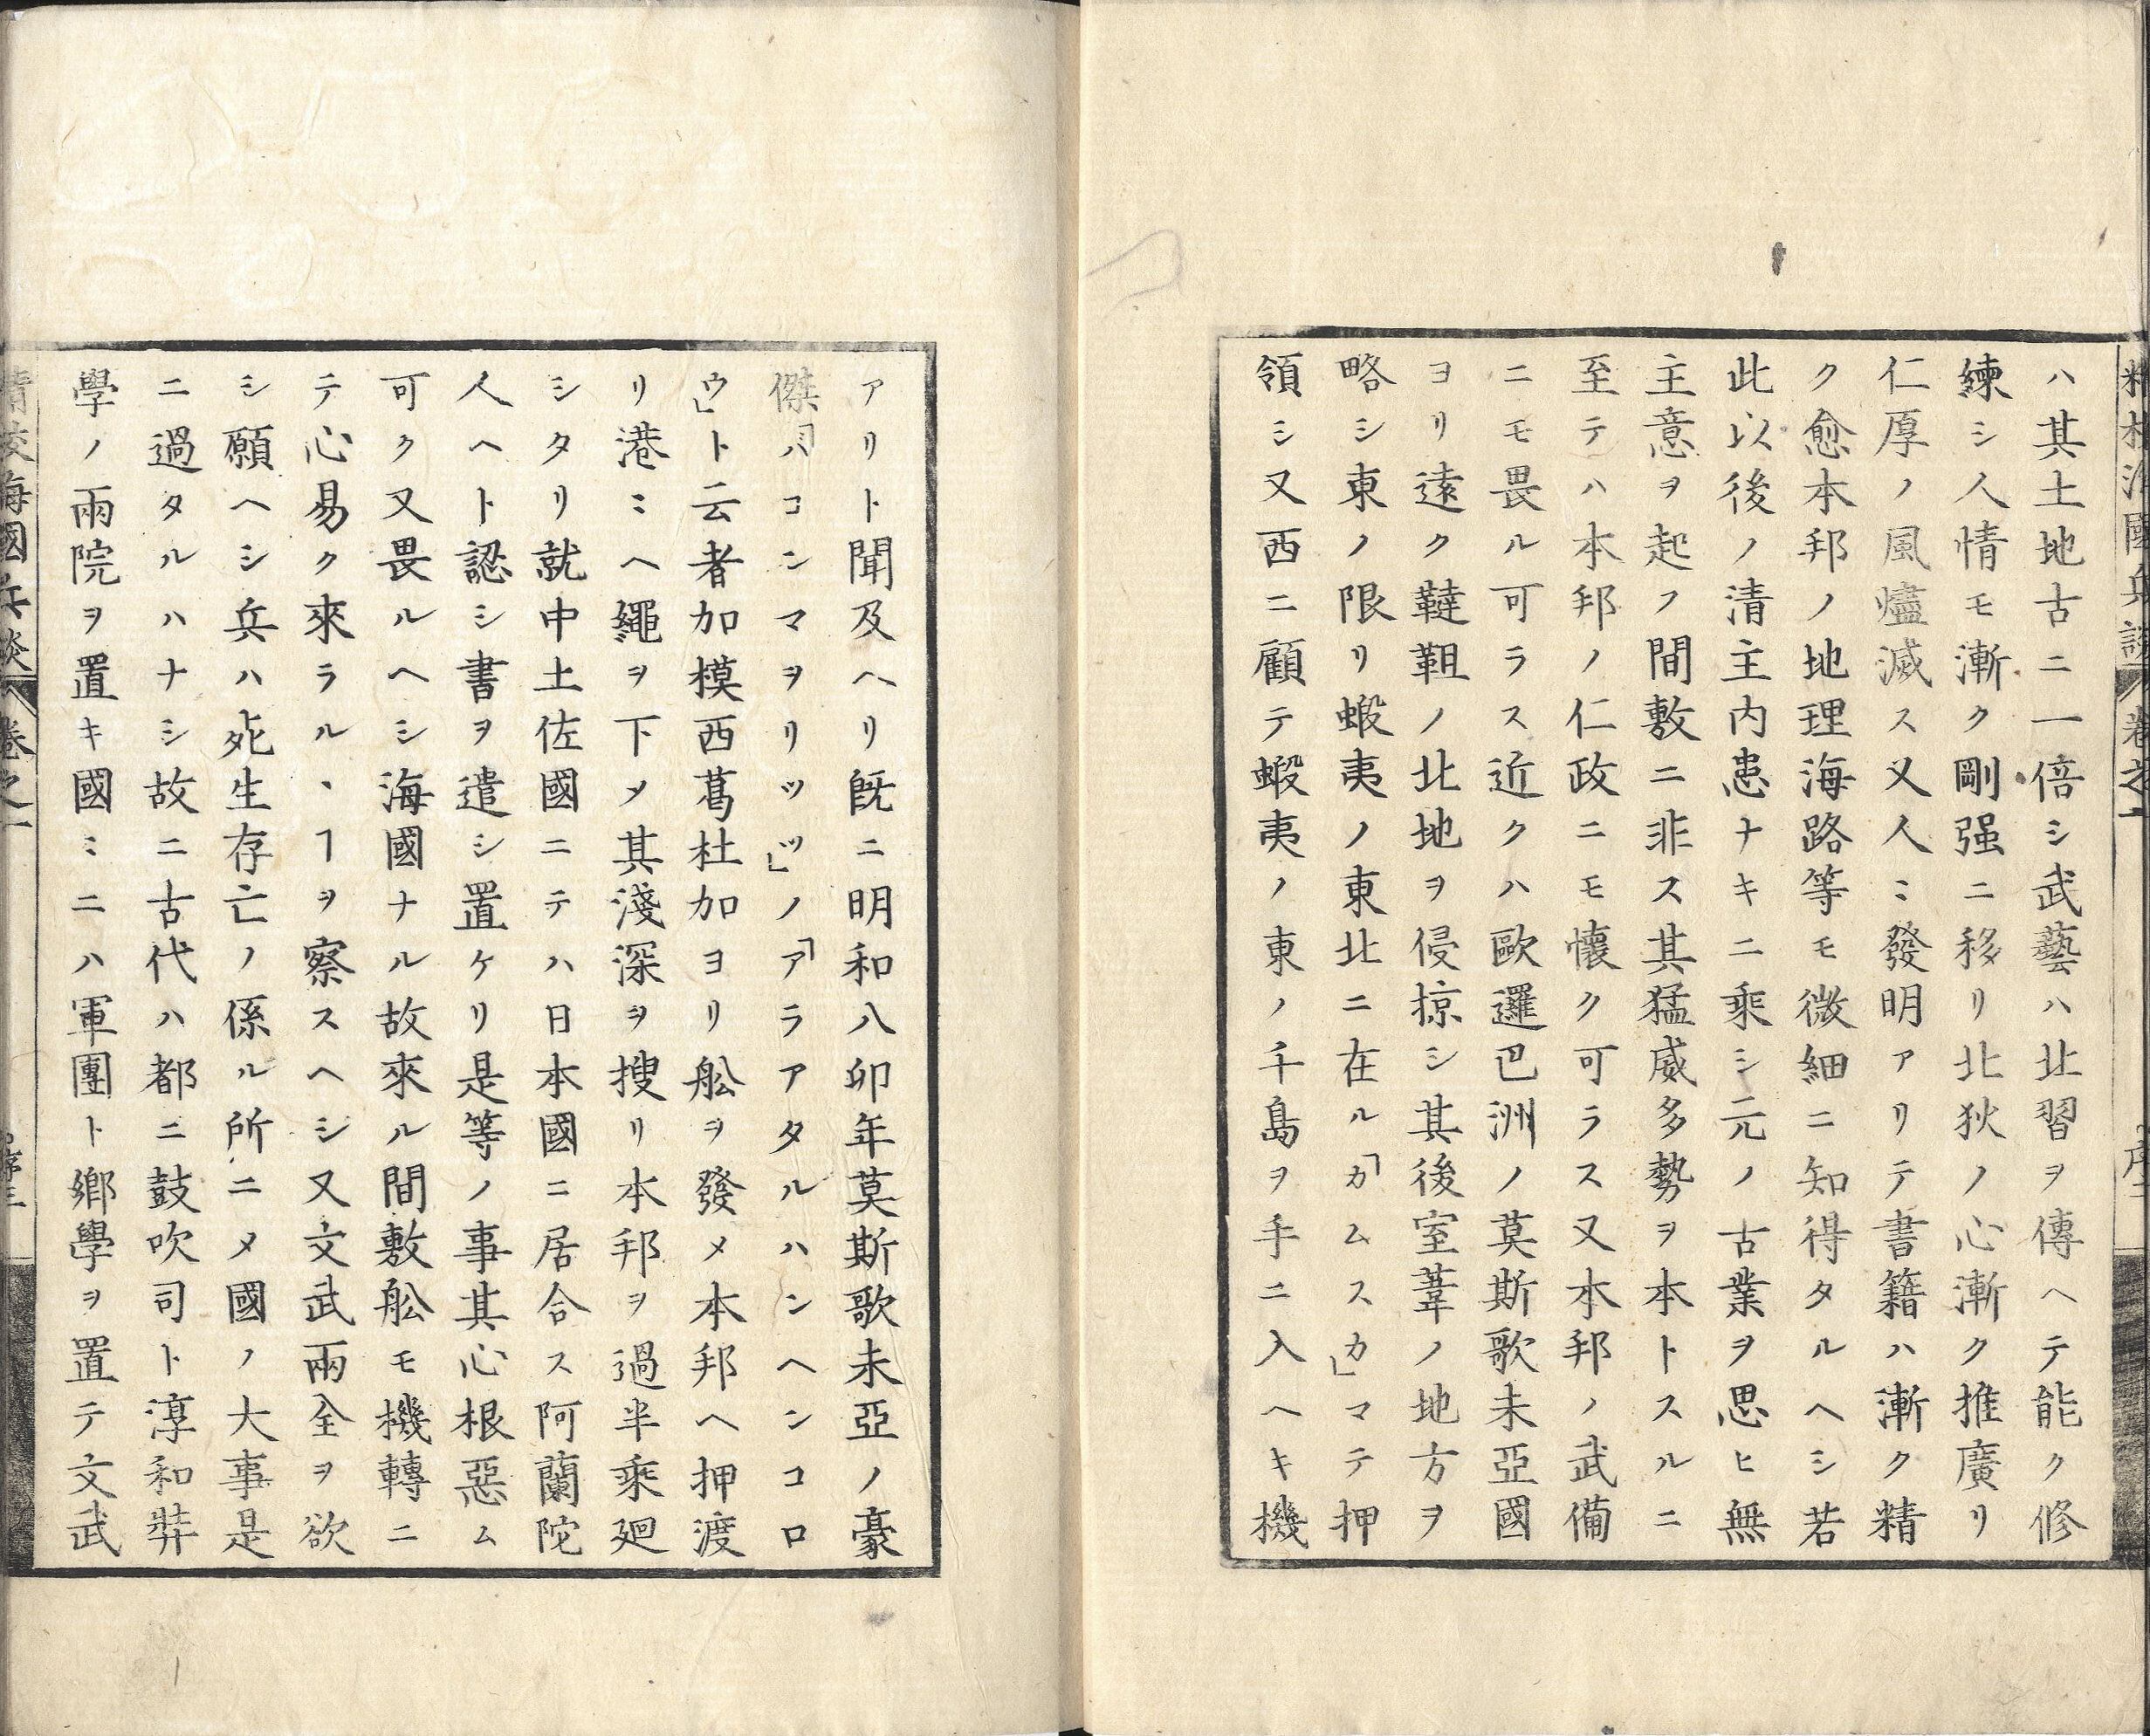 ハ其土地古ニ一倍シ武藝ハ北習ヲ傳ヘテ能ク修
練シ人情モ漸ク剛强ニ移リ北狄ノ心漸ク推廣リ
仁厚ノ風燼滅ス又人ミ發明アリテ書籍ハ漸ク精
ク愈本邦ノ地理海路等モ微細ニ知得タルヘシ若
此以後ノ清主内患ナキニ乘シ元ノ古業ヲ思ヒ無
主意ヲ起フ間敷ニ非ス其猛威多勢ヲ本トスルニ
至テハ本邦ノ仁政ニモ懷ク可ラス又本邦ノ武備
ニモ畏ル可ラス近クハ歐邏巴洲ノ莫斯歌未亞國
ヨリ遠ク韃靼ノ北地ヲ侵掠シ其後室葦ノ地方ヲ
略シ東ノ限リ蝦夷ノ東北ニ在ル「カムスカ」マテ押
領シ又西ニ顧テ蝦夷ノ東ノ千島ヲ手ニ入ヘキ機
アリト聞及ヘリ旣ニ明和八卯年莫斯歌未亞ノ豪
傑「バコンマヲリツツ」ノ「アラアタルハンヘンコロ
ウ」ト云者加模西葛杜加ヨリ舩ヲ發メ本邦ヘ押渡
リ港ミヘ繩ヲ下メ其淺深ヲ搜リ本邦ヲ過半乘廻
シタリ就中土佐國ニテハ日本國ニ居合ス阿蘭陀
人ヘト認シ書ヲ遣シ置ケリ是等ノ事其心根惡ム
可ク又畏ルヘシ海國ナル故來ル間敷舩モ機轉ニ
テ心易ク來ラル丶ヿヲ察スヘシ又文武兩全ヲ欲
シ願ヘシ兵ハ死生存亡ノ係ル所ニメ國ノ大事是
ニ過タルハナシ故ニ古代ハ都ニ鼓吹司ト淳和弉
學ノ兩院ヲ置キ國ミニハ軍團ト鄕學ヲ置テ文武
海國兵談 卷之一 序三